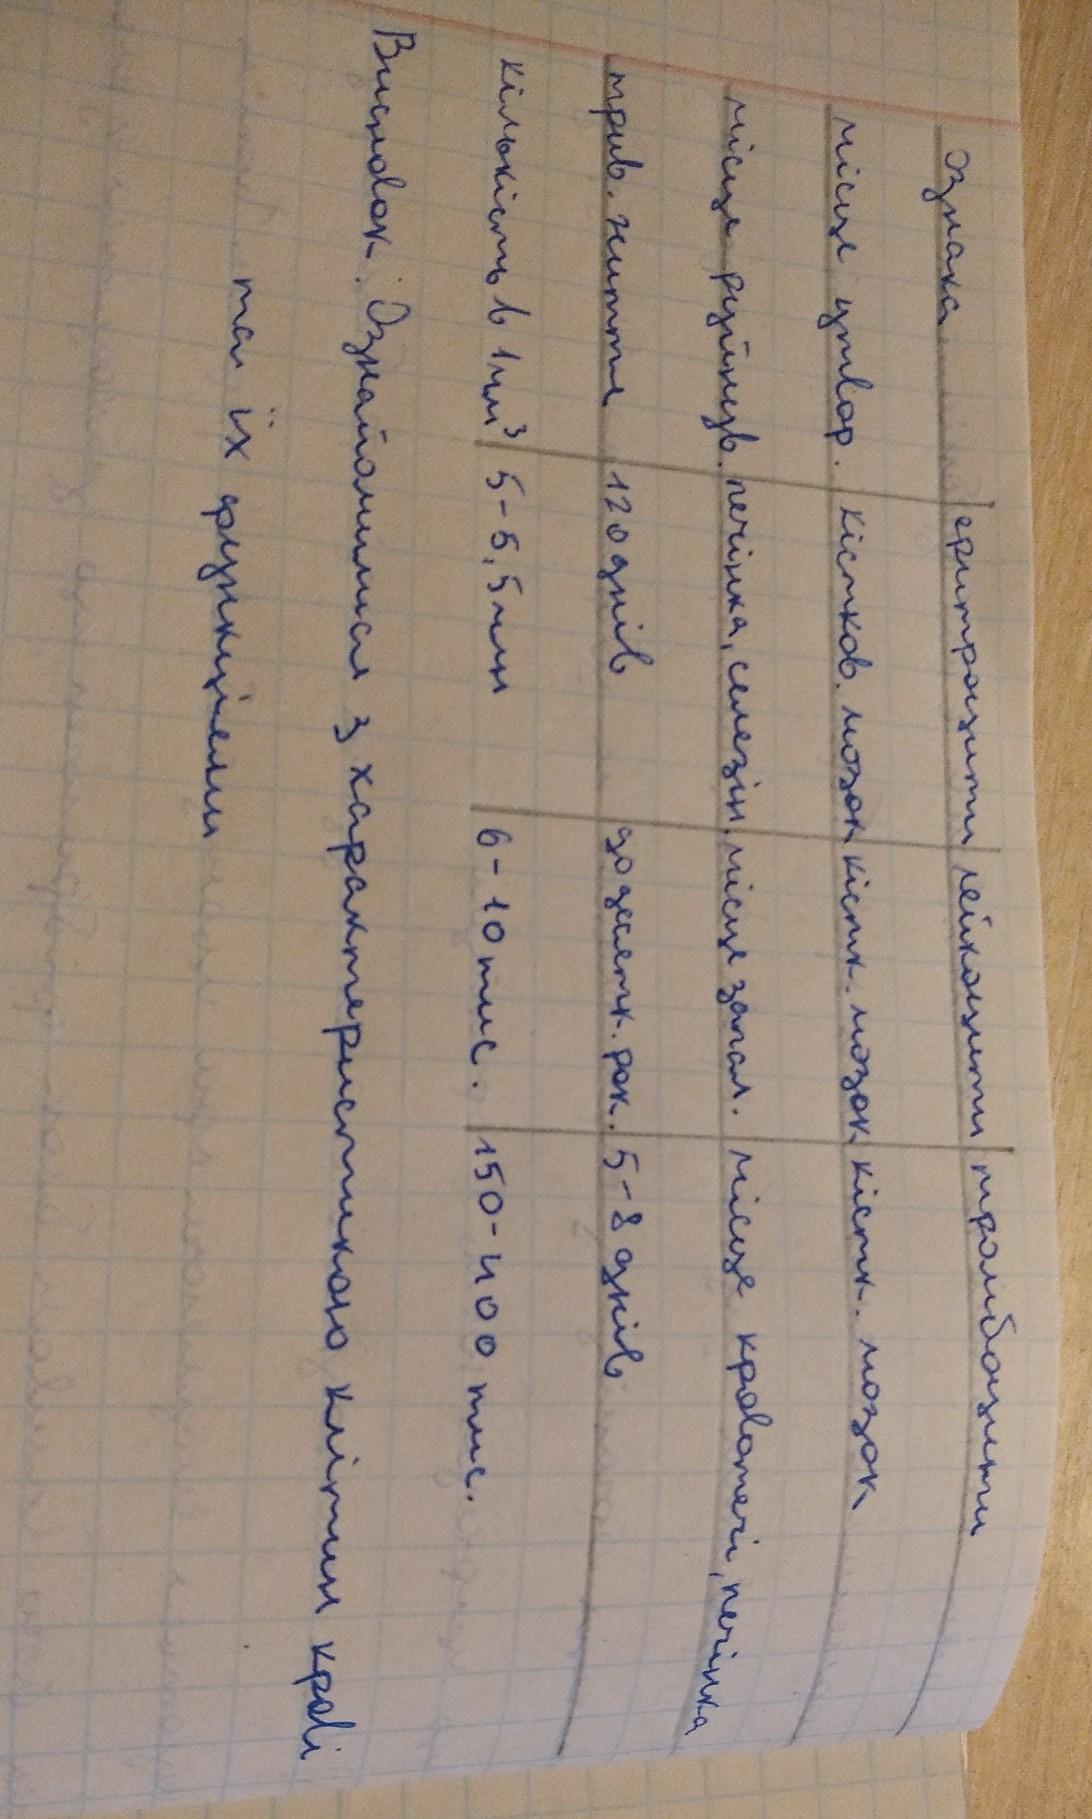 Ознака еритроцити лейкоцити тромбоцити
місце утвор. кістков. мозок кістк. мозок кістк. мозок
місце руйнув. печінка, селезін. місце запал. місце кровотечі, печінка
трив. життя 120 днів до десятк. рок. 5-8 днів
кількість в 1мм³ 5-5,5млн 6-10 тис. 150-400 тис.
Висновок: Ознайомилися з характеристикою клітин крові
та їх функціями